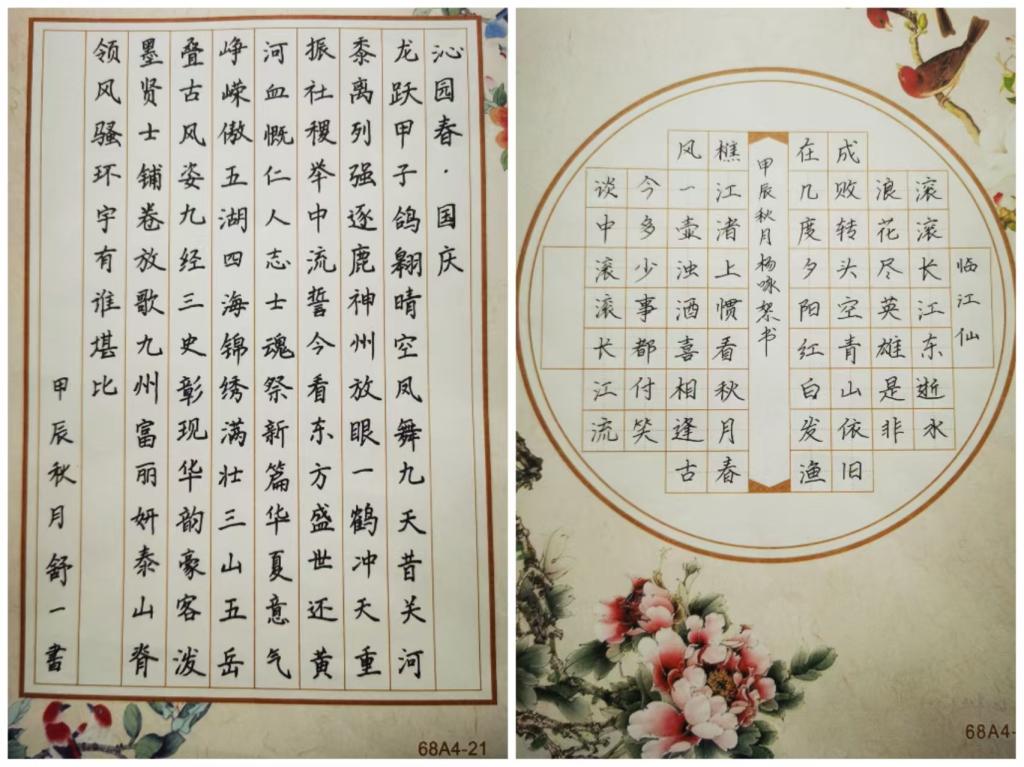 沁园春·国庆
龙跃甲子鸽翱晴空凤舞九天昔关河
黍离列强逐鹿神州放眼一鹤冲天重
振社稷举中流誓今看东方盛世还黄
河血慨仁人志士魂祭新篇华夏意气
峥嵘傲五湖四海锦绣满壮三山五岳
叠古风姿九经三史彰现华韵豪客泼
墨贤士铺卷放歌九州富丽妍泰山脊
领风骚环宇有谁堪比
甲辰秋月舒一书
68A4-21
临江仙
滚滚长江东逝水
浪花尽英雄是非
成败转头空青山依旧
在几度夕阳红白发渔
甲辰秋月杨咏絮书
樵江渚上惯看秋月春
风一壶浊酒喜相逢古
今多少事都付笑
谈中滚滚长江流
68A4-